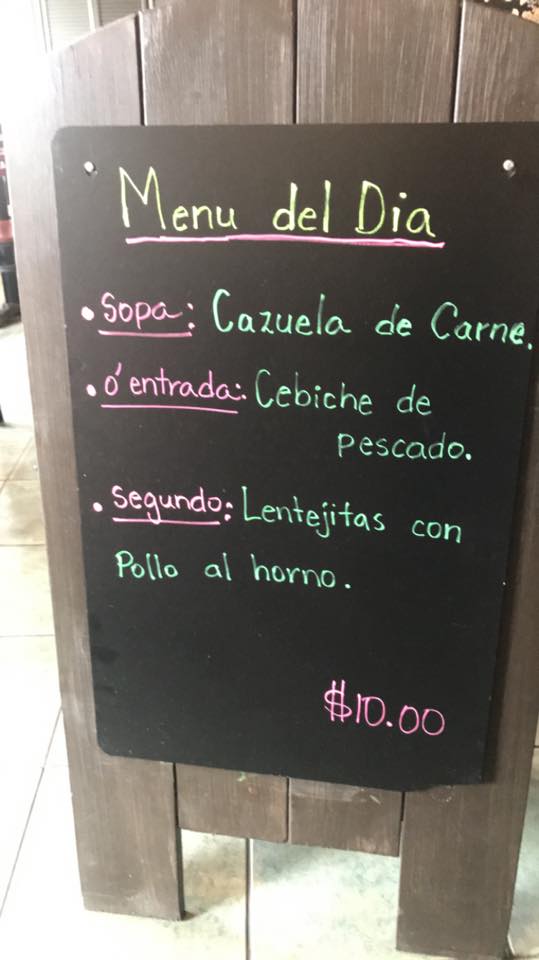 Menu del Dia
• Sopa: Cazuela de Carne.
• ó entrada: Cebiche de
pescado.
• Segundo: Lentejitas con
Pollo al horno.
$10.00